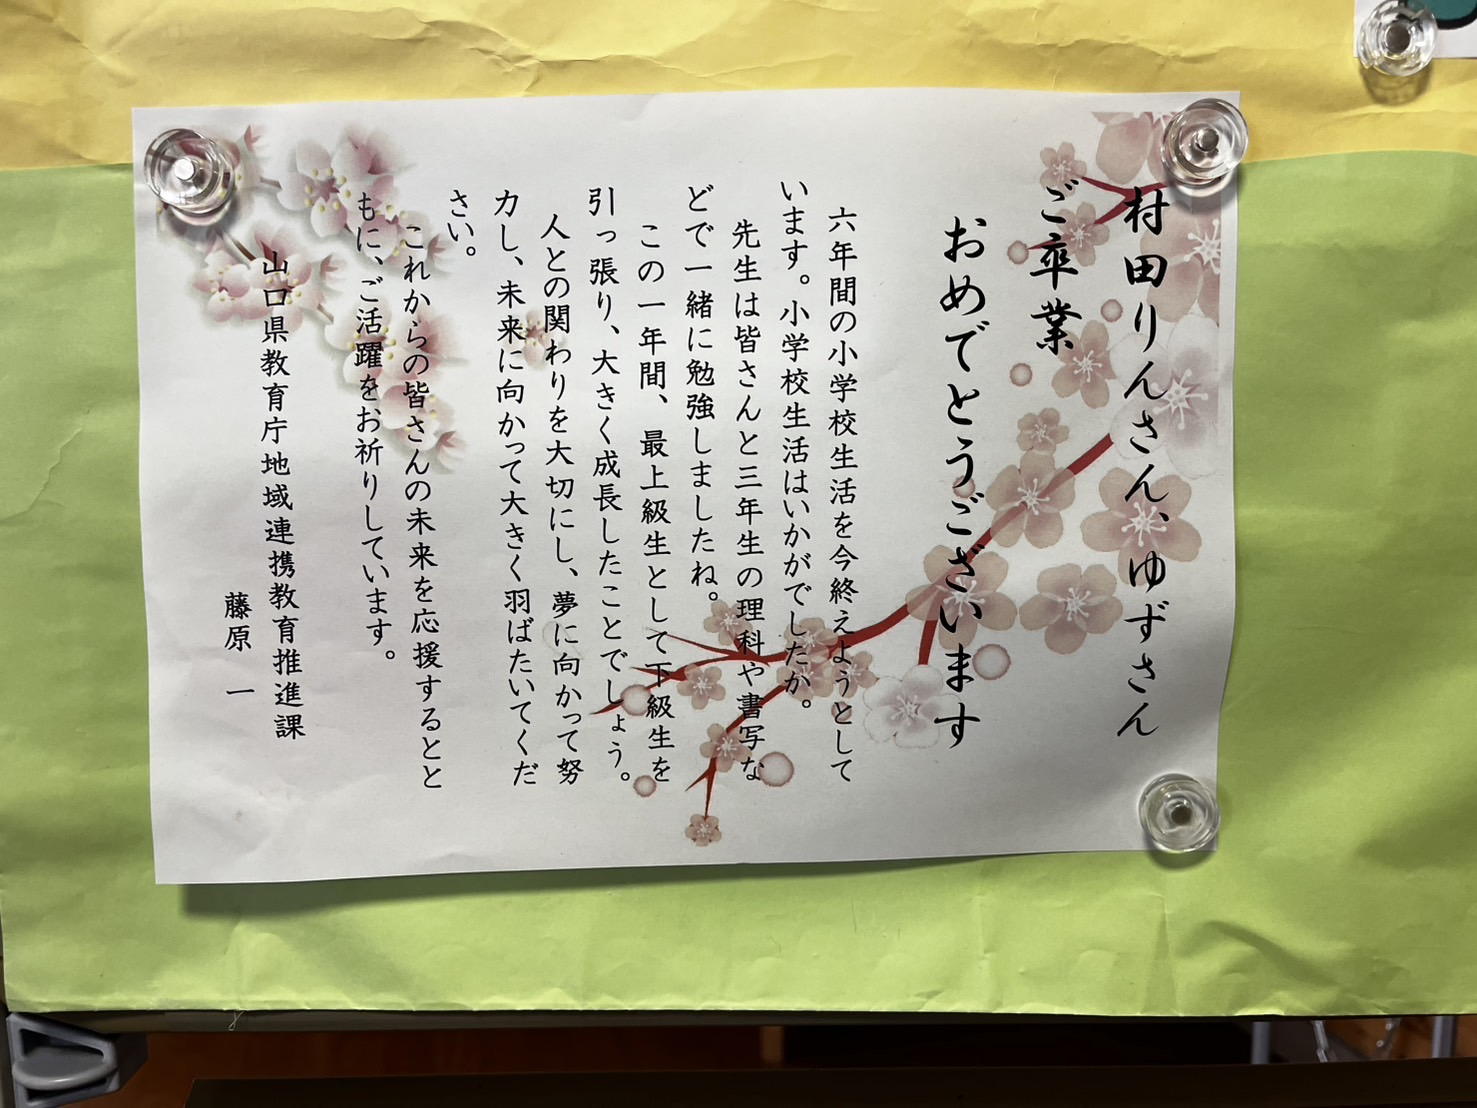 村田りんさん、ゆずさん
ご卒業
おめでとうございます
六年間の小学校生活を今終えようとして
います。小学校生活はいかがでしたか。
先生は皆さんと三年生の理科や書写な
どで一緒に勉強しましたね。
この一年間、最上級生として下級生を
引っ張り、大きく成長したことでしょう。
人との関わりを大切にし、夢に向かって努
力し、未来に向かって大きく羽ばたいてくだ
さい。
これからの皆さんの未来を応援するとと
もに、ご活躍をお祈りしています。
山口県教育庁地域連携教育推進課
藤原 一